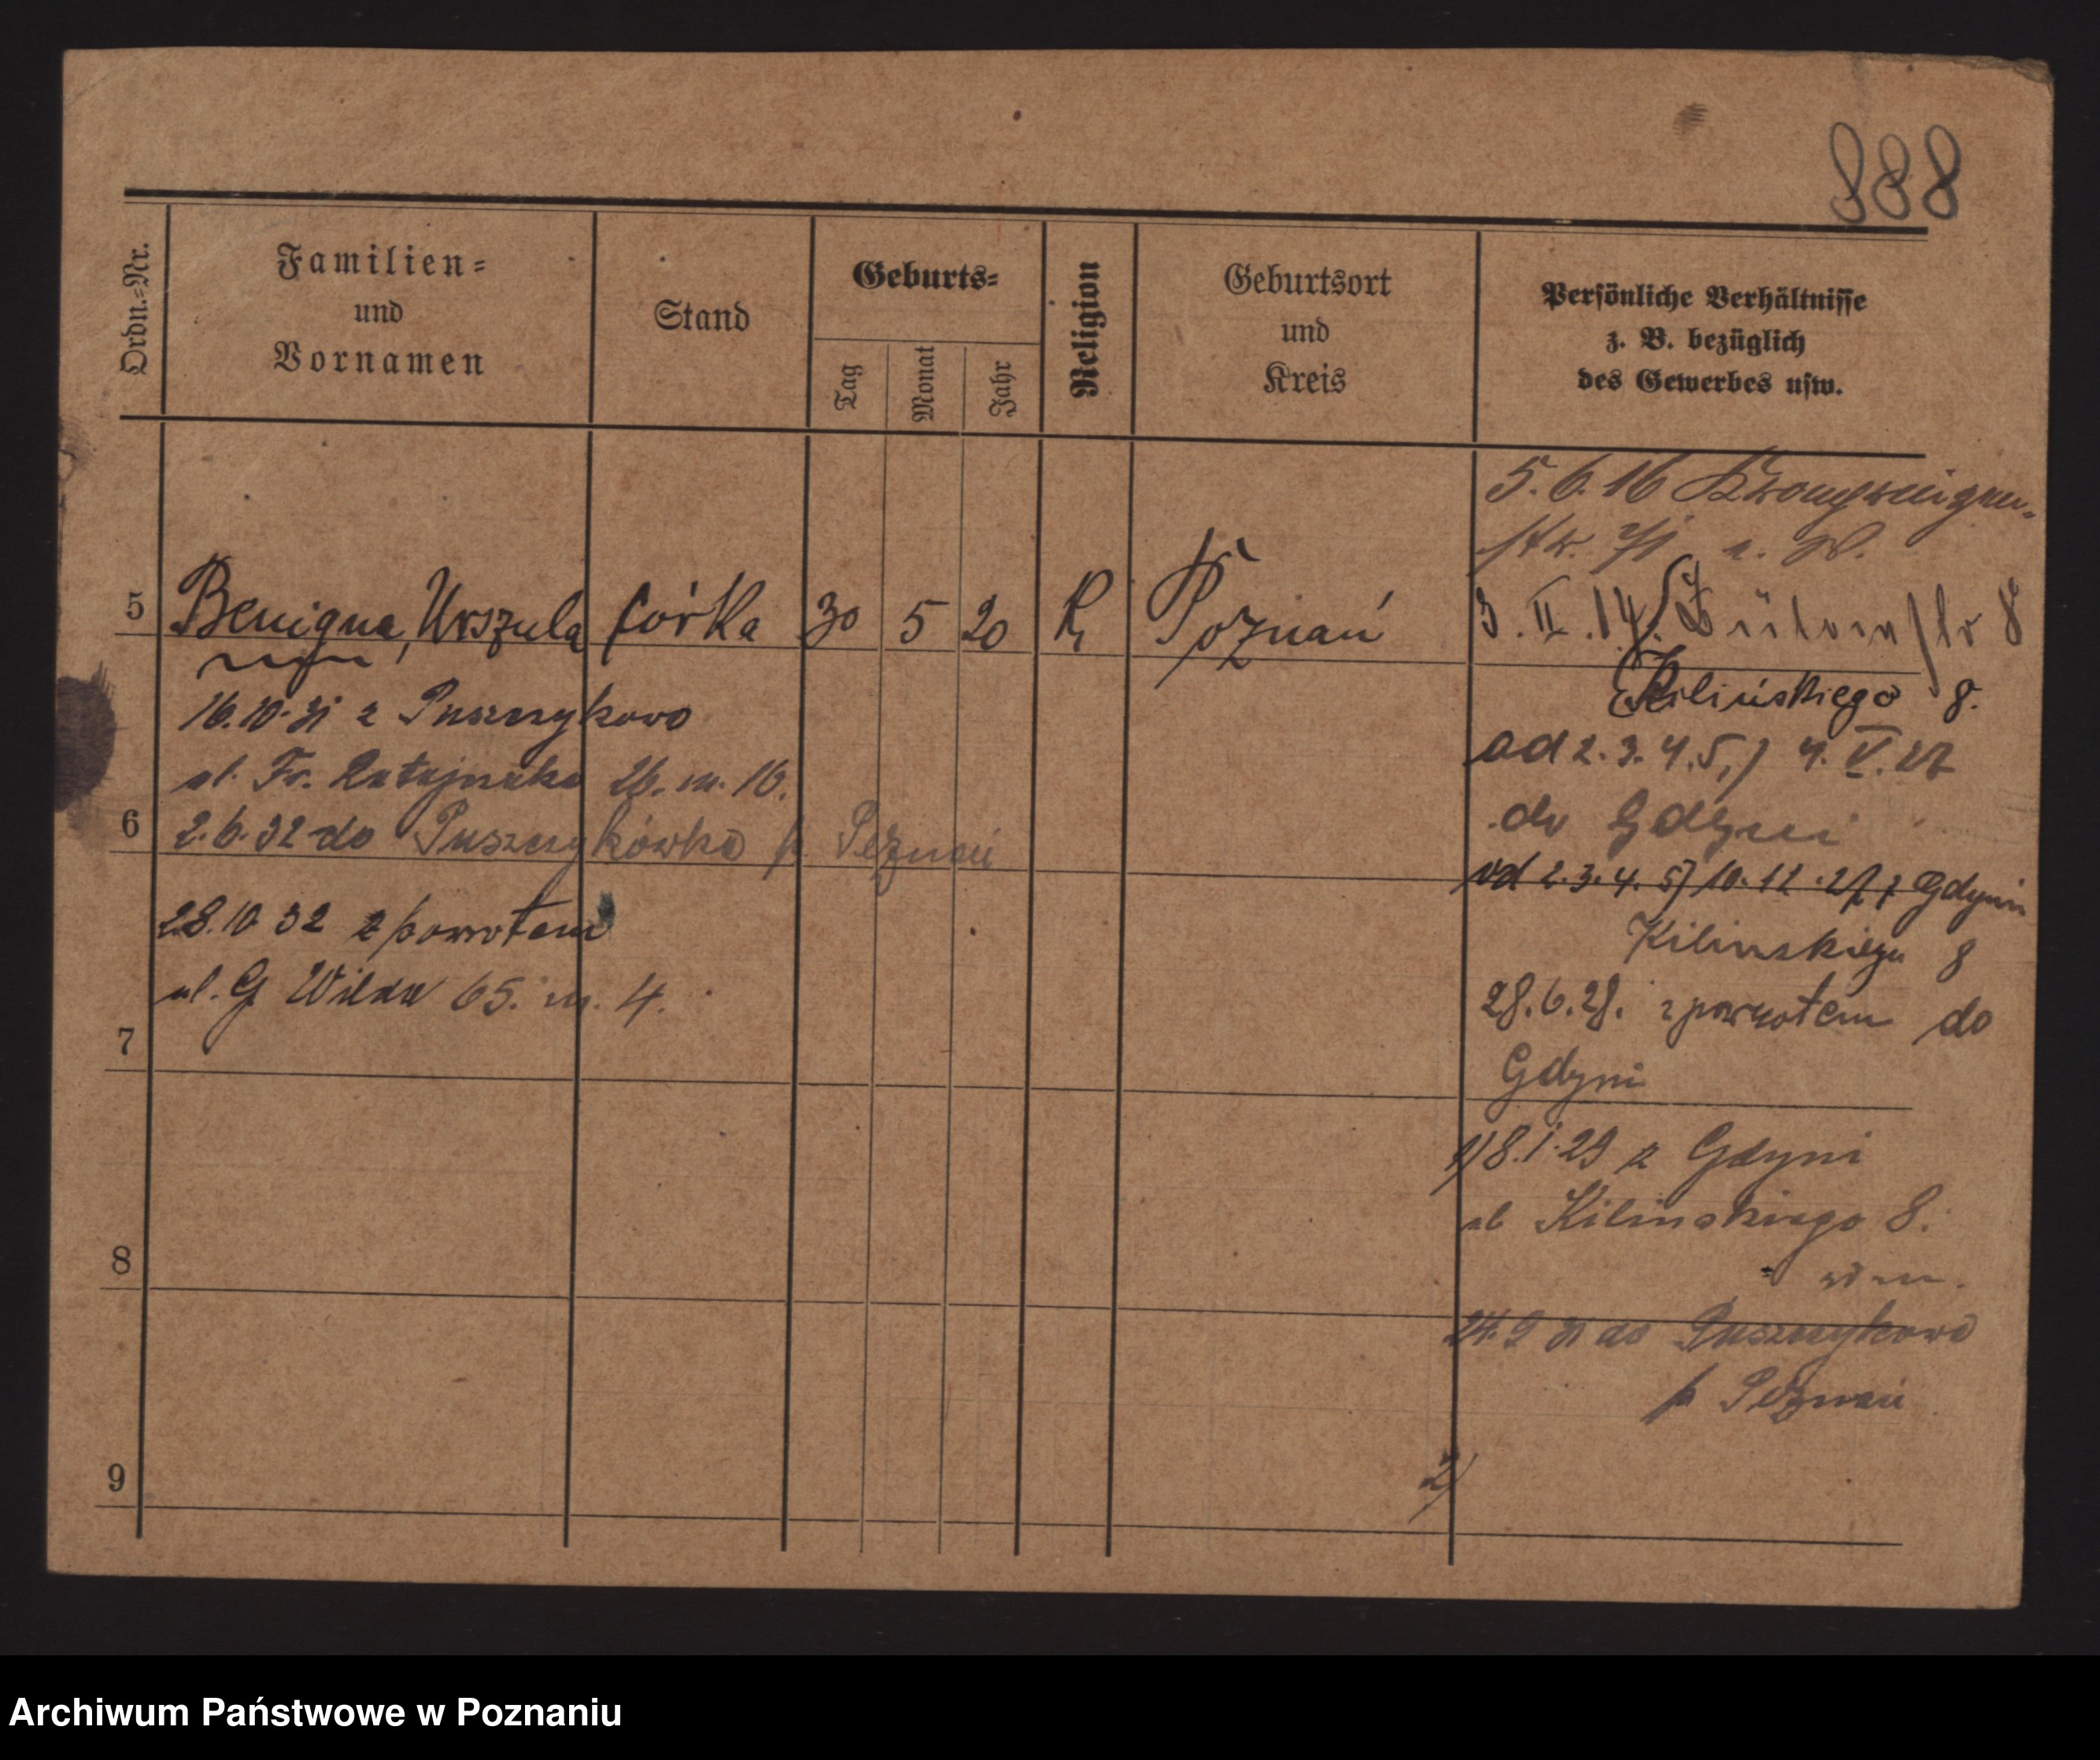 888
Ordn.=Nr.
Familien=
und
Vornamen
Stand
Geburts=
Tag
Monat
Jahr
Religion
Geburtsort
und
Kreis
Persönliche Verhältnisse
z. B. bezüglich
des Gewerbes usw.
5.6.16
3.II.14. 8
5 Benigna, Urszula córka 30 5 20 R Poznań
Kilińskiego 8.
16.10.31 z Puszczykowo
ul. Fr. Ratajczaka 26. m. 16.
od 2.3.4.5,) 4.V.27
do Gdyni
6 2.6.32 do Puszczykówko p. Poznań
od 2.3.4.5) 10.12.27 z Gdyni
Kilinskiego 8
28.10 32 z powrotem
ul. G Wilda 65. m. 4.
28.6.28. z powrotem do
Gdyni
7
1) 8.1.29 z Gdyni
ul Kilinskiego 8.
8
24.9 31 do Puszczykowo
p Poznań
2)
9
Archiwum Państwowe w Poznaniu